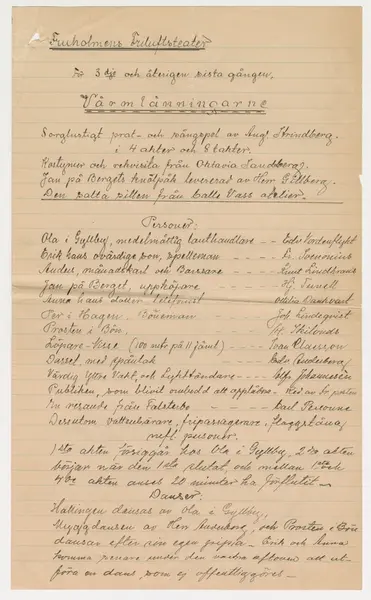 Furholmens Friluftsteater
För 3dje och återigen sista gången,
Värmlänningarne
Sorglustigt prat- och sångspel av Aug. Strindberg.
i 4 akter och 8 takter.
Kostymer och rekvisita från Oktavia Sandberg.
Jan på Bergets knälpåk levererad av Herr Gellberg.
Den salta sillen från Calle Vass atelier.
Personer:
Ola i Gyllby, medelmåttig lanthandlare - - Edv Nordenflycht
Erik hans ovärdige son, spelleman - - -
Anders, månadskarl och - - Knut Lindstrand
Jan på Berget, upphöjare - - - Hj. Tunell
Anna hans dotter, telefonist - - -
Per i Hagen, Boueman - - - Jos Lindequist
Prosten i Bön. - - -
Löpare-Nisse (100 mtr på 11 jämt) - - Ivan Claesson
Bassel, med spånlak - -
Värdig Yttre Vakt, och Ljuständare - -
Publiken, som blivit ombedd att applådera. - Red av Sv. posten
En resande från Falsterbo - - Carl
Dessutom vattenbärare, fripassagerare, flaggstång
m fl. personer.
1sta akten försiggår hos Ola i Gyllby, 2dra akten
börjar när den 1sta slutat, och mellan 1sta och
4de akten anses 20 minuter ha förflutit -
Danser:
Hallingen dansas av Ola i Gyllby,
Myggdansen av Herr och Prosten i Bön
dansar efter sin egen pipa. - Erik och Anna
komma senare under den vackra aftonen att ut-
föra en dans, som ej offentliggöres. -